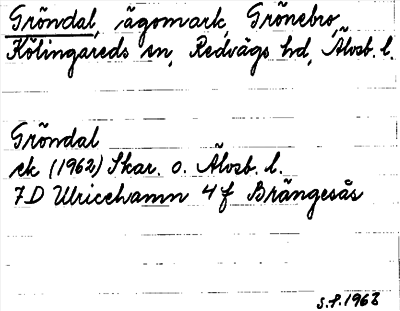 Gröndal, ägomark, Grönebro,
Kölingareds sn, Redvägs hd, Älvsb. l.
Gröndal
ek (1962) Skar. o. Älvsb. l.
7D Ulricehamn 4f Brängesås
S.P. 1963